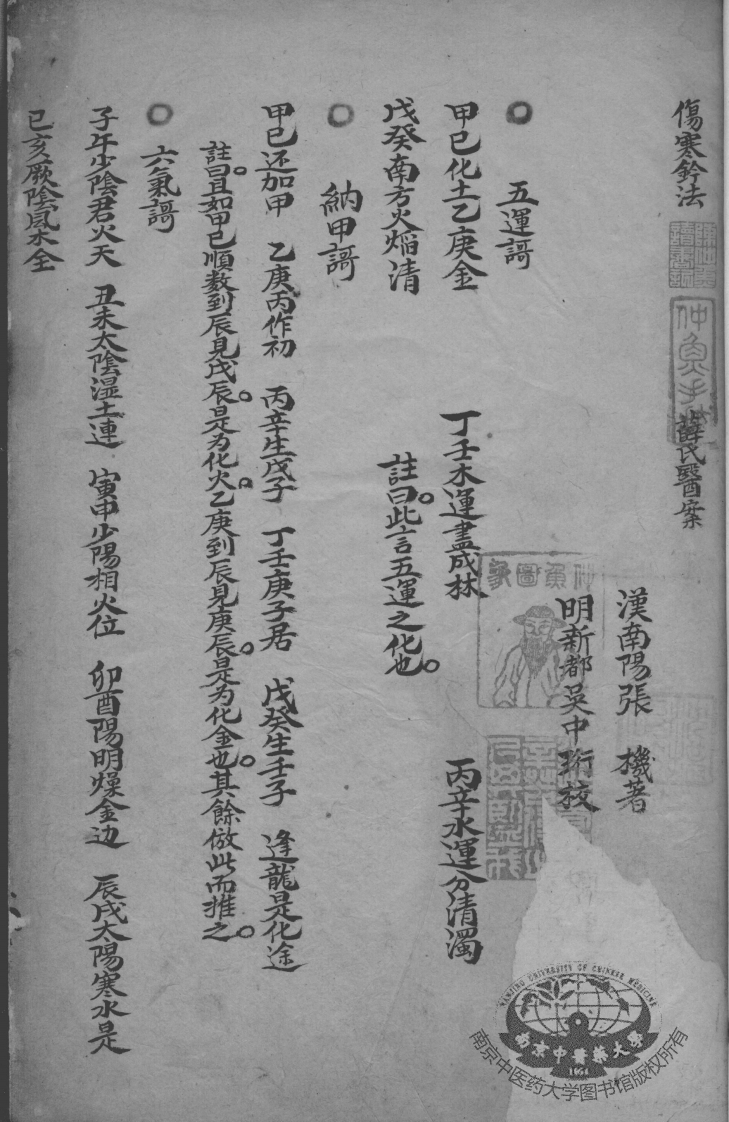 傷寒鈐法　薛氏醫案
漢南陽張　機著
明新都吳中珩校
五運謌
甲巳化土乙庚金　丁壬木運盡成林　丙辛水運分清濁
戊癸南方火焰清　註曰此言五運之化也
納甲謌
甲巳还加甲　乙庚丙作初　丙辛生戊子　丁壬庚子居　戊癸生壬子　逢龍是化途
註曰且如甲巳順数到辰見戊辰是为化火乙庚到辰見庚辰是为化金也其餘倣此而推之
六氣謌
子午少陰君火天　丑未太陰湿土連　寅申少陽相火位　卯酉陽明燥金边　辰戌太陽寒水是
巳亥厥陰風木全
仲魚圖象
仲魚手
NANJING UNIVERSITY OF CHINESE MEDICINE
南京中醫藥大學
1954
南京中医药大学图书馆版权所有